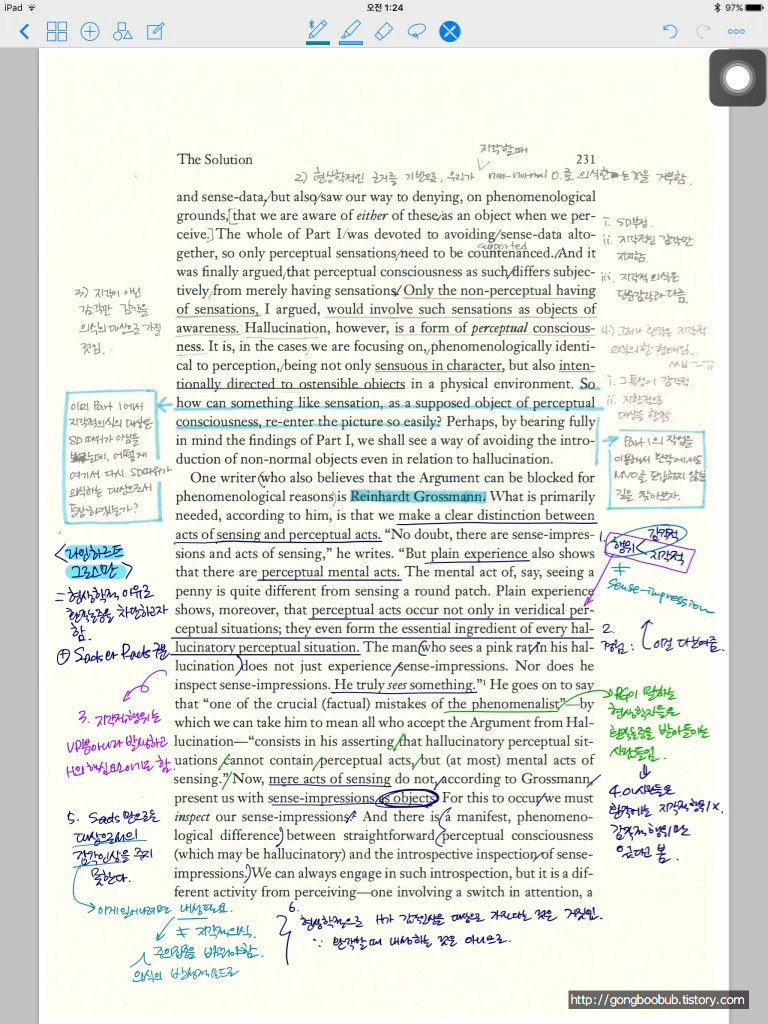 iPad
오전 1:24
97%
The Solution
231
지각할때
2) 현상학적인 근거를 기반으로, 우리가 non-normal O.를 의식한다는 것을 거부함.
and sense-data, but also saw our way to denying, on phenomenological
grounds, [that we are aware of either of these as an object when we per-
ceive.] The whole of Part I was devoted to avoiding sense-data alto-
supported
gether, so only perceptual sensations need to be countenanced. And it
was finally argued that perceptual consciousness as such differs subjec-
tively from merely having sensations. Only the non-perceptual having
of sensations, I argued, would involve such sensations as objects of
awareness. Hallucination, however, is a form of perceptual conscious-
ness. It is, in the cases we are focusing on, phenomenologically identi-
cal to perception, being not only sensuous in character, but also inten-
tionally directed to ostensible objects in a physical environment. So
how can something like sensation, as a supposed object of perceptual
consciousness, re-enter the picture so easily? Perhaps, by bearing fully
in mind the findings of Part I, we shall see a way of avoiding the intro-
duction of non-normal objects even in relation to hallucination.
One writer (who also believes that the Argument can be blocked for
phenomenological reasons) is Reinhardt Grossmann. What is primarily
needed, according to him, is that we make a clear distinction between
acts of sensing and perceptual acts. “No doubt, there are sense-impres-
sions and acts of sensing,” he writes. “But plain experience also shows
that there are perceptual mental acts. The mental act of, say, seeing a
penny is quite different from sensing a round patch. Plain experience
shows, moreover, that perceptual acts occur not only in veridical per-
ceptual situations; they even form the essential ingredient of every hal-
lucinatory perceptual situation. The man (who sees a pink rat in his hal-
lucination) does not just experience sense-impressions. Nor does he
inspect sense-impressions. He truly sees something.”¹ He goes on to say
that “one of the crucial (factual) mistakes of the phenomenalist”—by
which we can take him to mean all who accept the Argument from Hal-
lucination—“consists in his asserting that hallucinatory perceptual sit-
uations cannot contain perceptual acts, but (at most) mental acts of
sensing.” Now, mere acts of sensing do not, according to Grossmann,
present us with sense-impressions as objects. For this to occur we must
inspect our sense-impressions. And there is (a manifest, phenomeno-
logical difference) between straightforward (perceptual consciousness
(which may be hallucinatory) and the introspective inspection of sense-
impressions.) We can always engage in such introspection, but it is a dif-
ferent activity from perceiving—one involving a switch in attention, a
i. SD부정.
ii. 지각적인 감각만
지지함.
iii. 지각적 의식은
단순감각과 다름.
3) 지각이 아닌
감각만 감각을
의식의 대상으로 가질
것임.
4) 그러나 환각은 지각적
의식의 한 형태임.
i. 그 특성이 감각적.
ii. 지향적으로
대상을 향함.
이미 Part 1에서
지각적의식의 대상은
SD 따위가 아님을
어떻게
여기서 다시 SD따위가
의식하는 대상으로서
등장하겠는가?
Part 1의 작업을
길을 찾아보자.
<라인하르트
그로스만>
= 현상학적 이유로
환각논증을 차단하고자
함.
⊕ Sacts와 Pacts 구분
1. 행위 < 감각적
지각적
≠
sense-impression
2.
경험: 이걸 다 보여줌.
3. 지각적행위는
VP뿐아니라 발생하고
H의 핵심요소이기도 함.
여기서 말하는
현상학자들은
환각논증을 받아들이는
사람들임.
4. 이사람들은
환각에는 지각적행위 X.
감각적 행위만
있다고 봄.
5. Sacts 만으로는
대상으로서의
감각인상을 주지
못한다.
이게 일어나려면 내성필요.
≠ 지각적의식.
주의집중을 바꿔야함.
6.
현상학적으로 H가 감각인상을 대상으로 가진다는 것은 거짓임.
∵ 환각할때 내성하는 것은 아니므로.
http://gongboobub.tistory.com